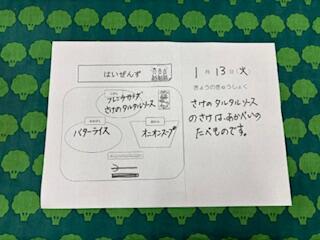 はいぜんず
フレンチサラダ
さけのタルタルソース
バターライス
オニオンスープ
1月13日(火)
きょうのきゅうしょく
さけのタルタルソース
のさけは、あかべいの
たべものです。